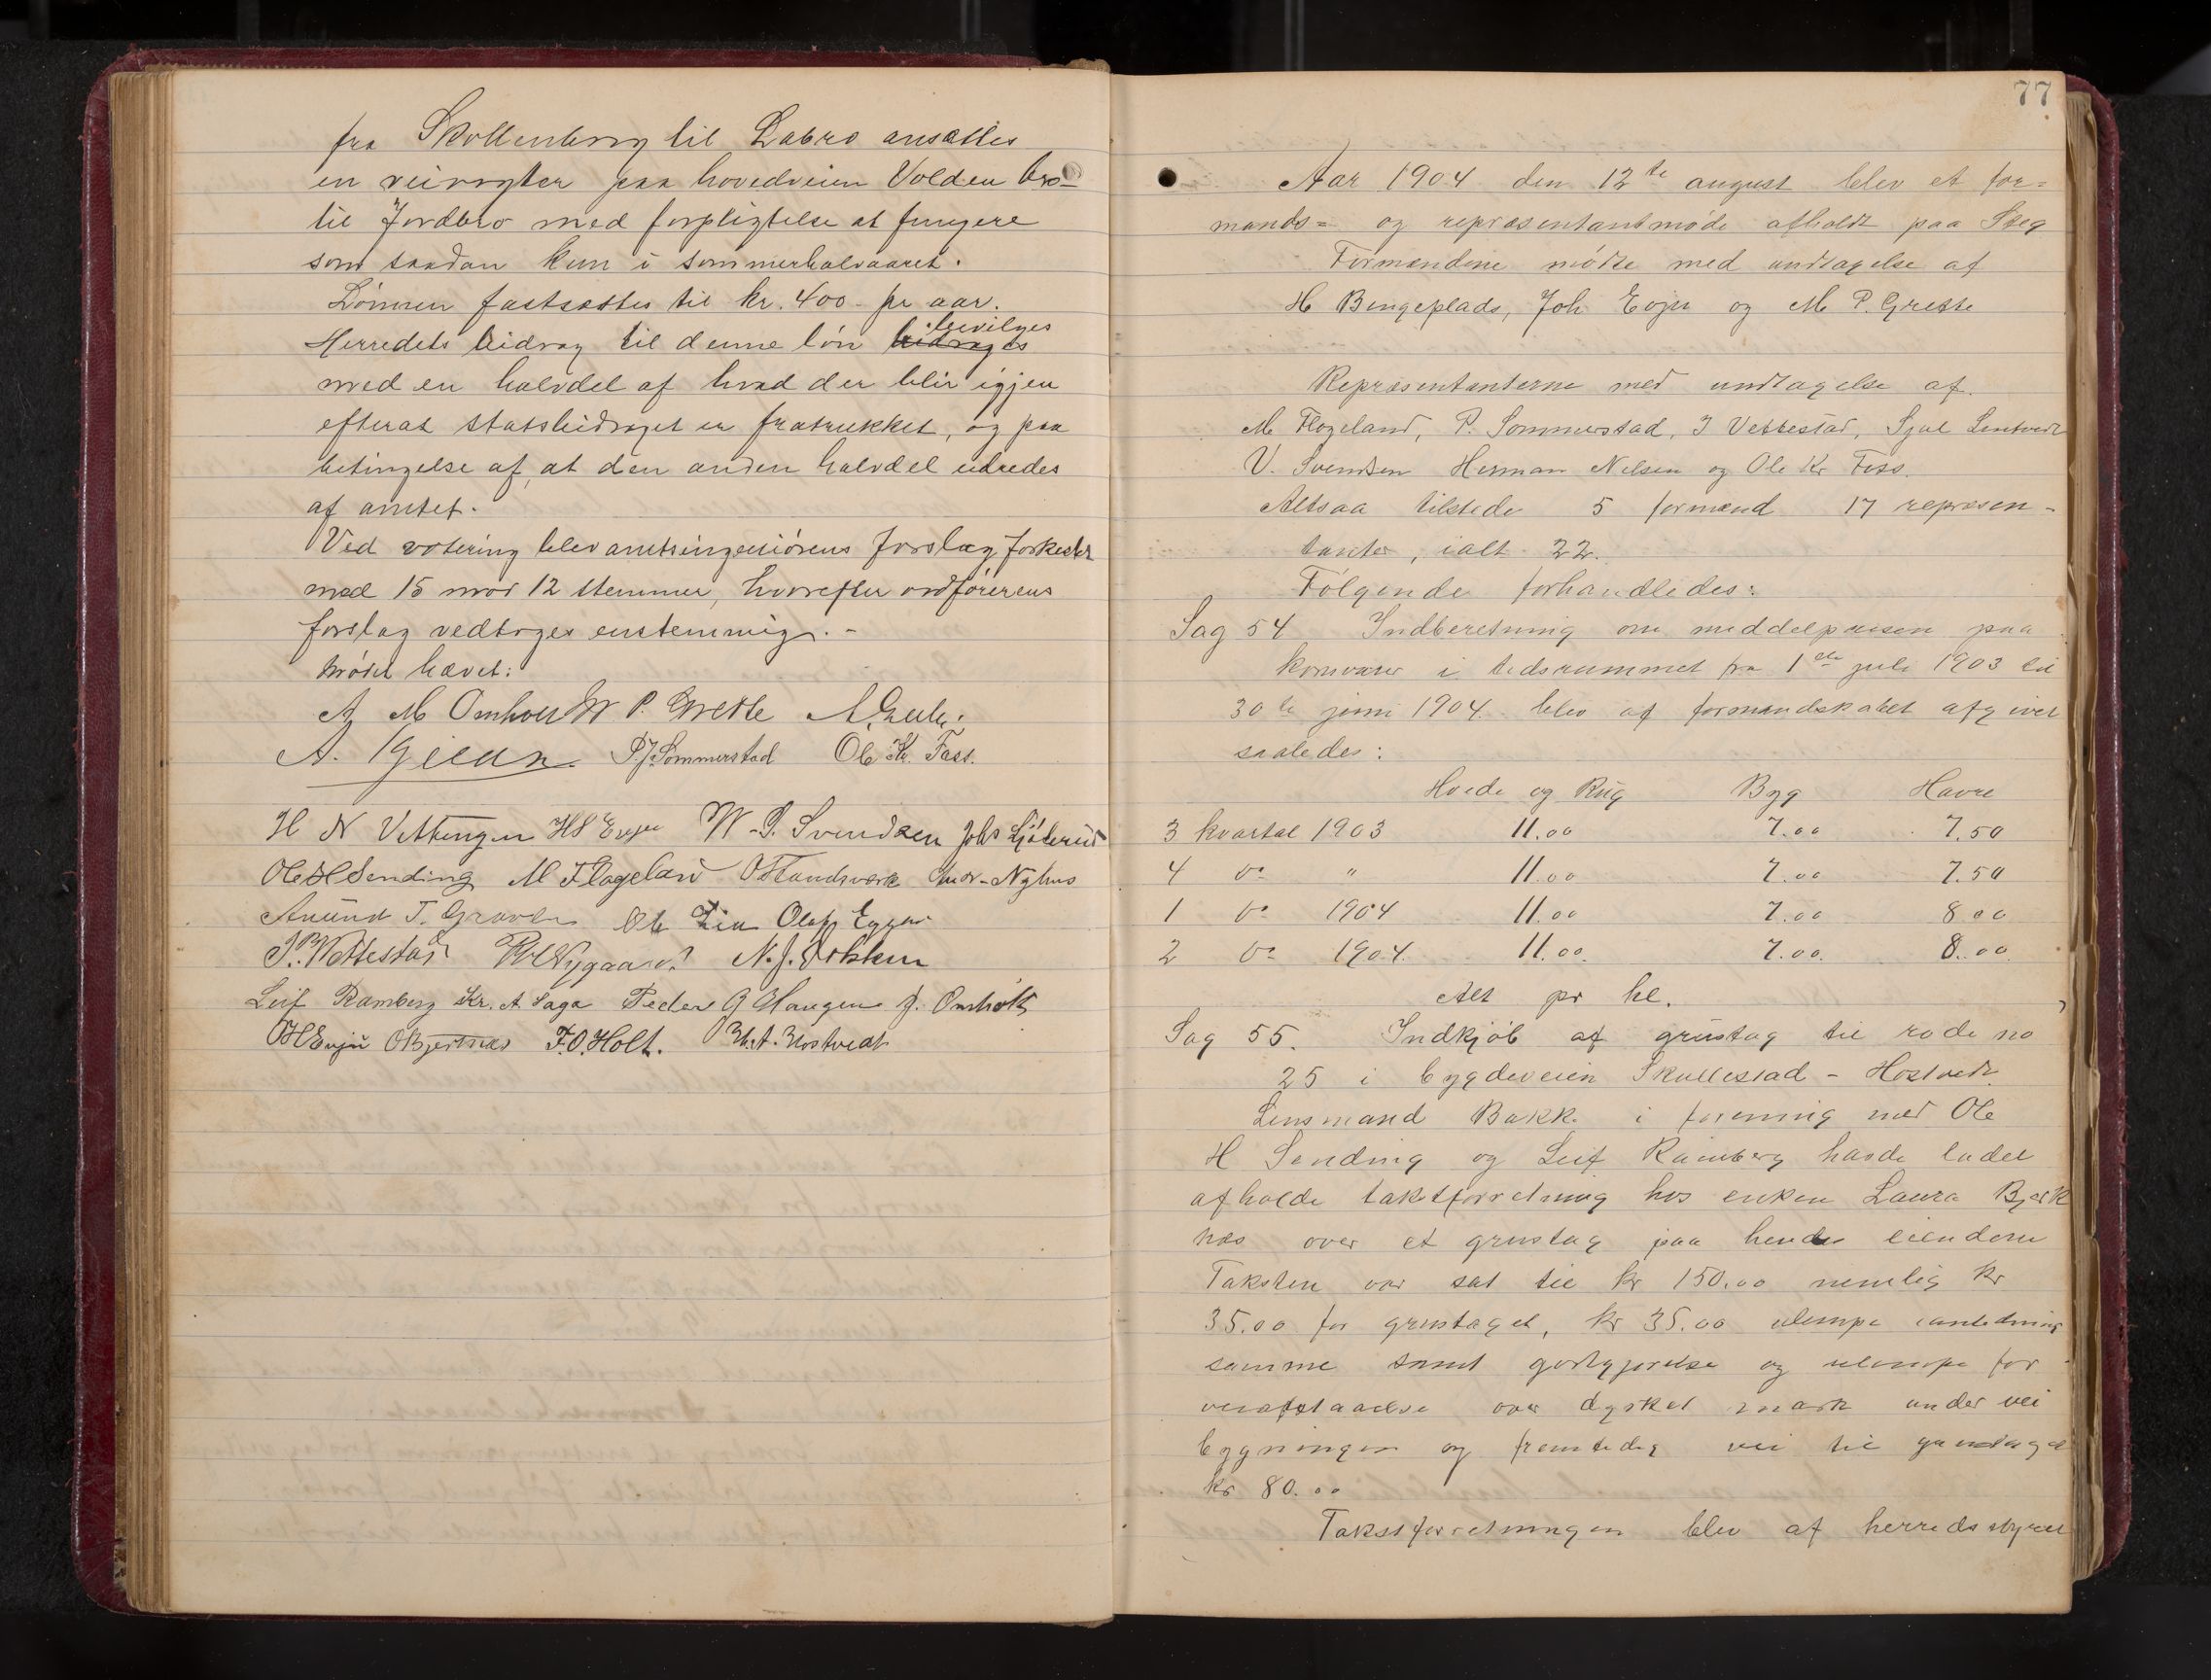 fra Skollenborg til Labro ansættes
en veivogter paa hovedveien Volden bro-
til Jordbro med forpligtelse at fungere
som saadan kun i sommerhalvaaret.
Lønnen fastsættes til kr. 400 - pr aar.
bevilges
Herredets bidrag til denne løn bidrages
med en halvdel af hvad der blir igjen
efterat statsbidraget er fratrukket, og paa
betingelse af, at den anden halvdel udredes
af amtet.
Ved votering blev amtsingeniørens forslag forkastet
med 15 mod 12 stemmer, hvorefter ordførerens
forslag vedtoges enstemmig. -
Mødet hævet:
A M Omholt M P. Grette
P. J. Sommerstad Ole Kr. Fass.
H N Vettengen HS Evju W. S. Svendsen Johs
Ole H Sending M Flageland O Handsværk Nyhus
Amund T. Graven Ole Lia Olaf
J. B. Wettestad Nygaard N. J. Dokken
Leif Ramberg Kr. A Saga Peder G Haugen J. Omholt
OH Evju O Bjertnæs F. O. Holt. Hostvedt
77
Aar 1904 den 12te august blev et for=
mands= og repræsentantmøde afholdt paa Steg
Formændene mødte med undtagelse af
H Bingeplads, Joh Evju og M P. Grette
Repræsentanterne med undtagelse af
M Flogeland, P. Sommerstad, I Vettestad, Sjul Lintvedt
V. Svendsen Herman Nilsen og Ole Kr Foss.
Altsaa tilstede 5 formænd 17 repræsen-
tanter, ialt 22.
Følgende forhandledes:
Sag 54 Indberetning om middelprisen paa
kornvarer i tidsrummet fra 1ste juli 1903 til
30te juni 1904 blev af formandskabet afgivet
saaledes:
Hvede og Rug Byg Havre
3 kvartal 1903 11.00 7.00 7.50
4 do " 11.00 7.00 7.50
1 do 1904 11.00 7.00 8.00
2 do 1904. 11.00. 7.00. 8.00
Alt pr hl.
Sag 55. Indkjøb af grustag til rode no
25 i bygdeveien Skullestad - Hostvedt.
Lensmand Bakk i forening med Ole
H Sending og Leif Ramberg havde ladet
afholde takstforretning hos enken Laura Bjerk
nes over et grustag paa hendes eiendom
Taksten var sat til kr 150.00 nemlig kr
35.00 for grustaget, kr 35.00 ulempe i anledning
samme samt godtgjørelse og ulempe for
veiafstaaelse over dyrket mark under vei
bygningen og fremtidig vei til grustaget
kr 80.00
Takstforretningen blev af herredsstyret